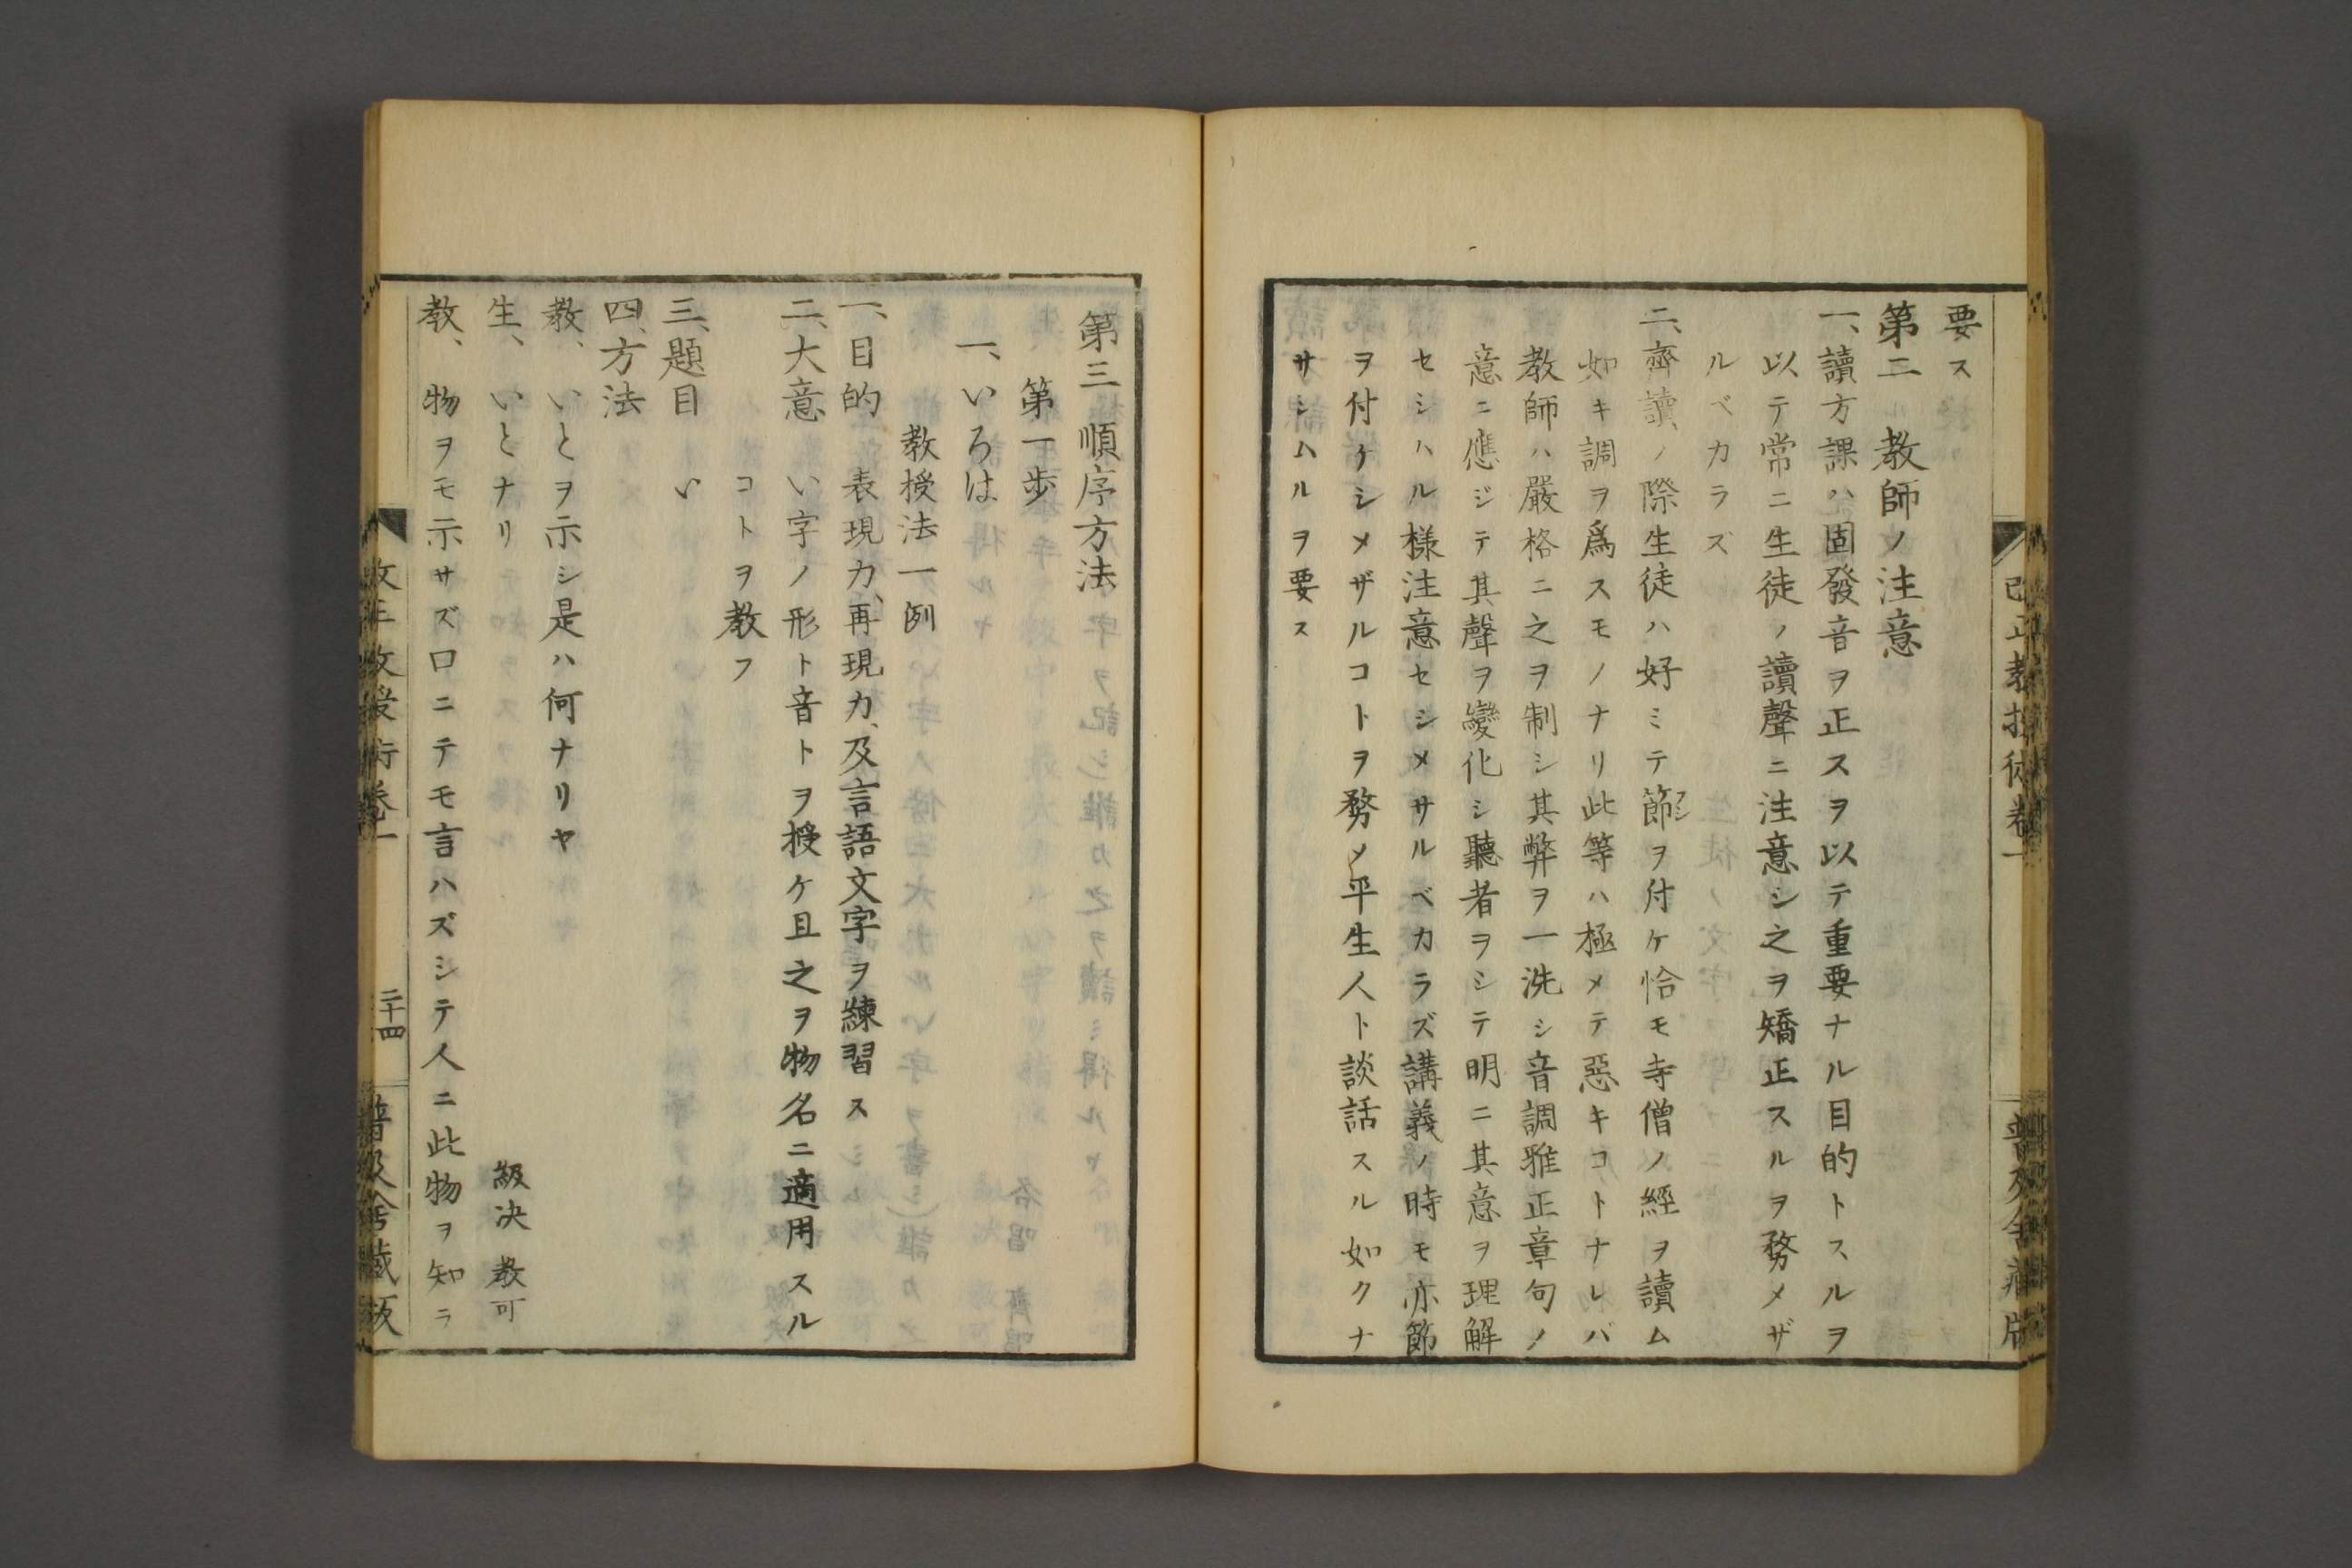 要ス
第二 教師ノ注意
一、讀方課ハ固發音ヲ正スヲ以テ重要ナル目的トスルヲ
以テ常ニ生徒ノ讀聲ニ注意シ之ヲ矯正スルヲ務メザ
ルベカラズ
二、齊讀ノ際生徒ハ好ミテ節フシヲ付ケ恰モ寺僧ノ經ヲ讀ム
如キ調ヲ爲スモノナリ此等ハ極メテ惡キコトナレバ
教師ハ嚴格ニ之ヲ制シ其弊ヲ一洗シ音調雅正章句ノ
意ニ應ジテ其聲ヲ變化シ聽者ヲシテ明ニ其意ヲ理解
セシハル樣注意セシメサルベカラズ講義ノ時モ亦節
ヲ付ケシメザルコトヲ務メ平生人ト談話スル如クナ
サシムルヲ要ス
第三 順序方法
第一歩
一、いろは
教授法一例
一、目的 表現力、再現力、及言語文字ヲ練習ス
二、大意 い字ノ形ト音トヲ授ケ且之ヲ物名ニ適用スル
コトヲ教フ
三、題目 い
四、方法
教、 いとヲ示シ是ハ何ナリヤ
生、 いとナリ 級決 教可
教、 物ヲモ示サズ口ニテモ言ハズシテ人ニ此物ヲ知ラ
改正教授術卷一 二十四 普及舍藏版